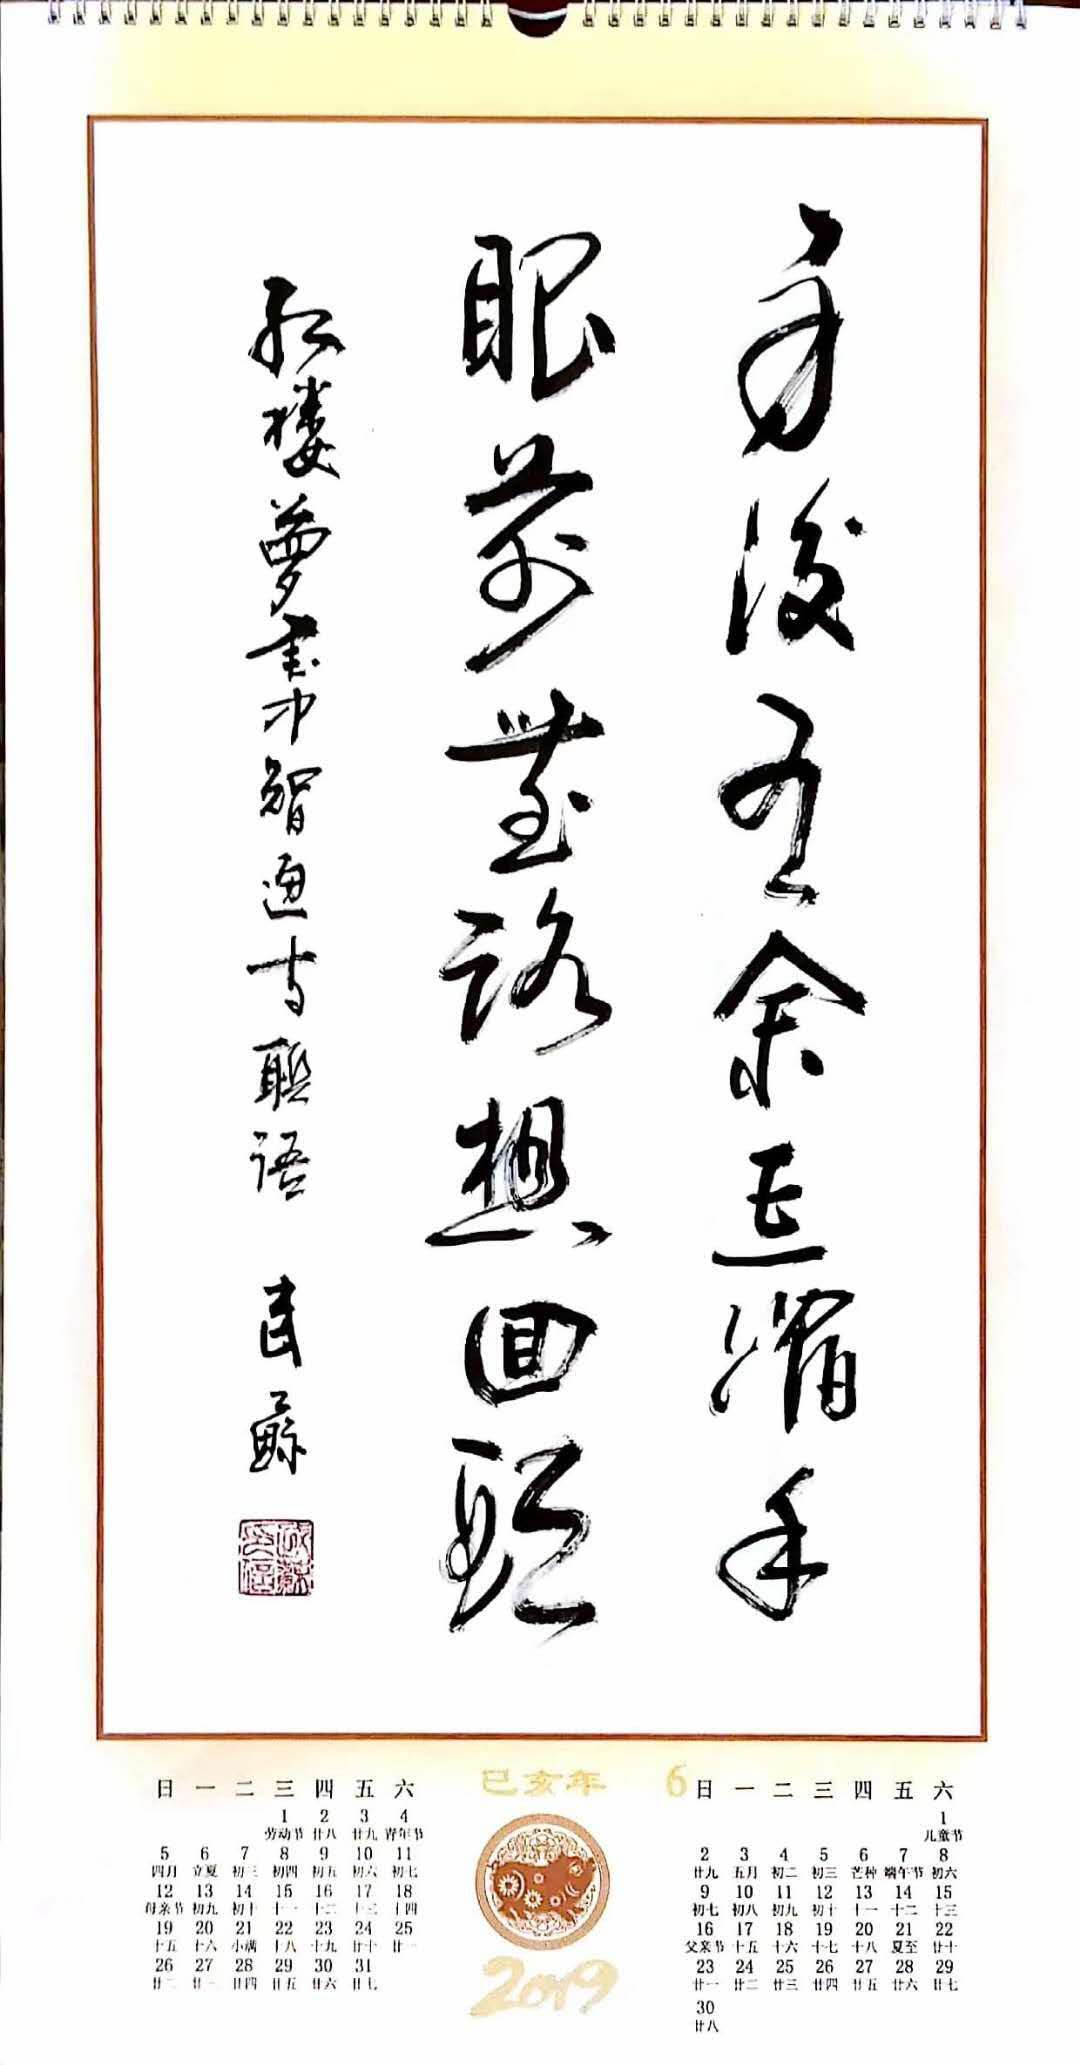 身後有余忘縮手
眼前無路想回頭
红楼夢書中智通寺聯語
日 一 二 三 四 五 六
1 2 3 4
劳动节 廿八 廿九 青年节
5 6 7 8 9 10 11
四月 立夏 初三 初四 初五 初六 初七
12 13 14 15 16 17 18
母亲节 初九 初十 十一 十二 十三 十四
19 20 21 22 23 24 25
十五 十六 小满 十八 十九 廿十 廿一
26 27 28 29 30 31
廿二 廿三 廿四 廿五 廿六 廿七
己亥年
2019
6
日 一 二 三 四 五 六
1
儿童节
2 3 4 5 6 7 8
廿九 五月 初二 初三 芒种 端午节 初六
9 10 11 12 13 14 15
初七 初八 初九 初十 十一 十二 十三
16 17 18 19 20 21 22
父亲节 十五 十六 十七 十八 夏至 廿十
23 24 25 26 27 28 29
廿一 廿二 廿三 廿四 廿五 廿六 廿七
30
廿八